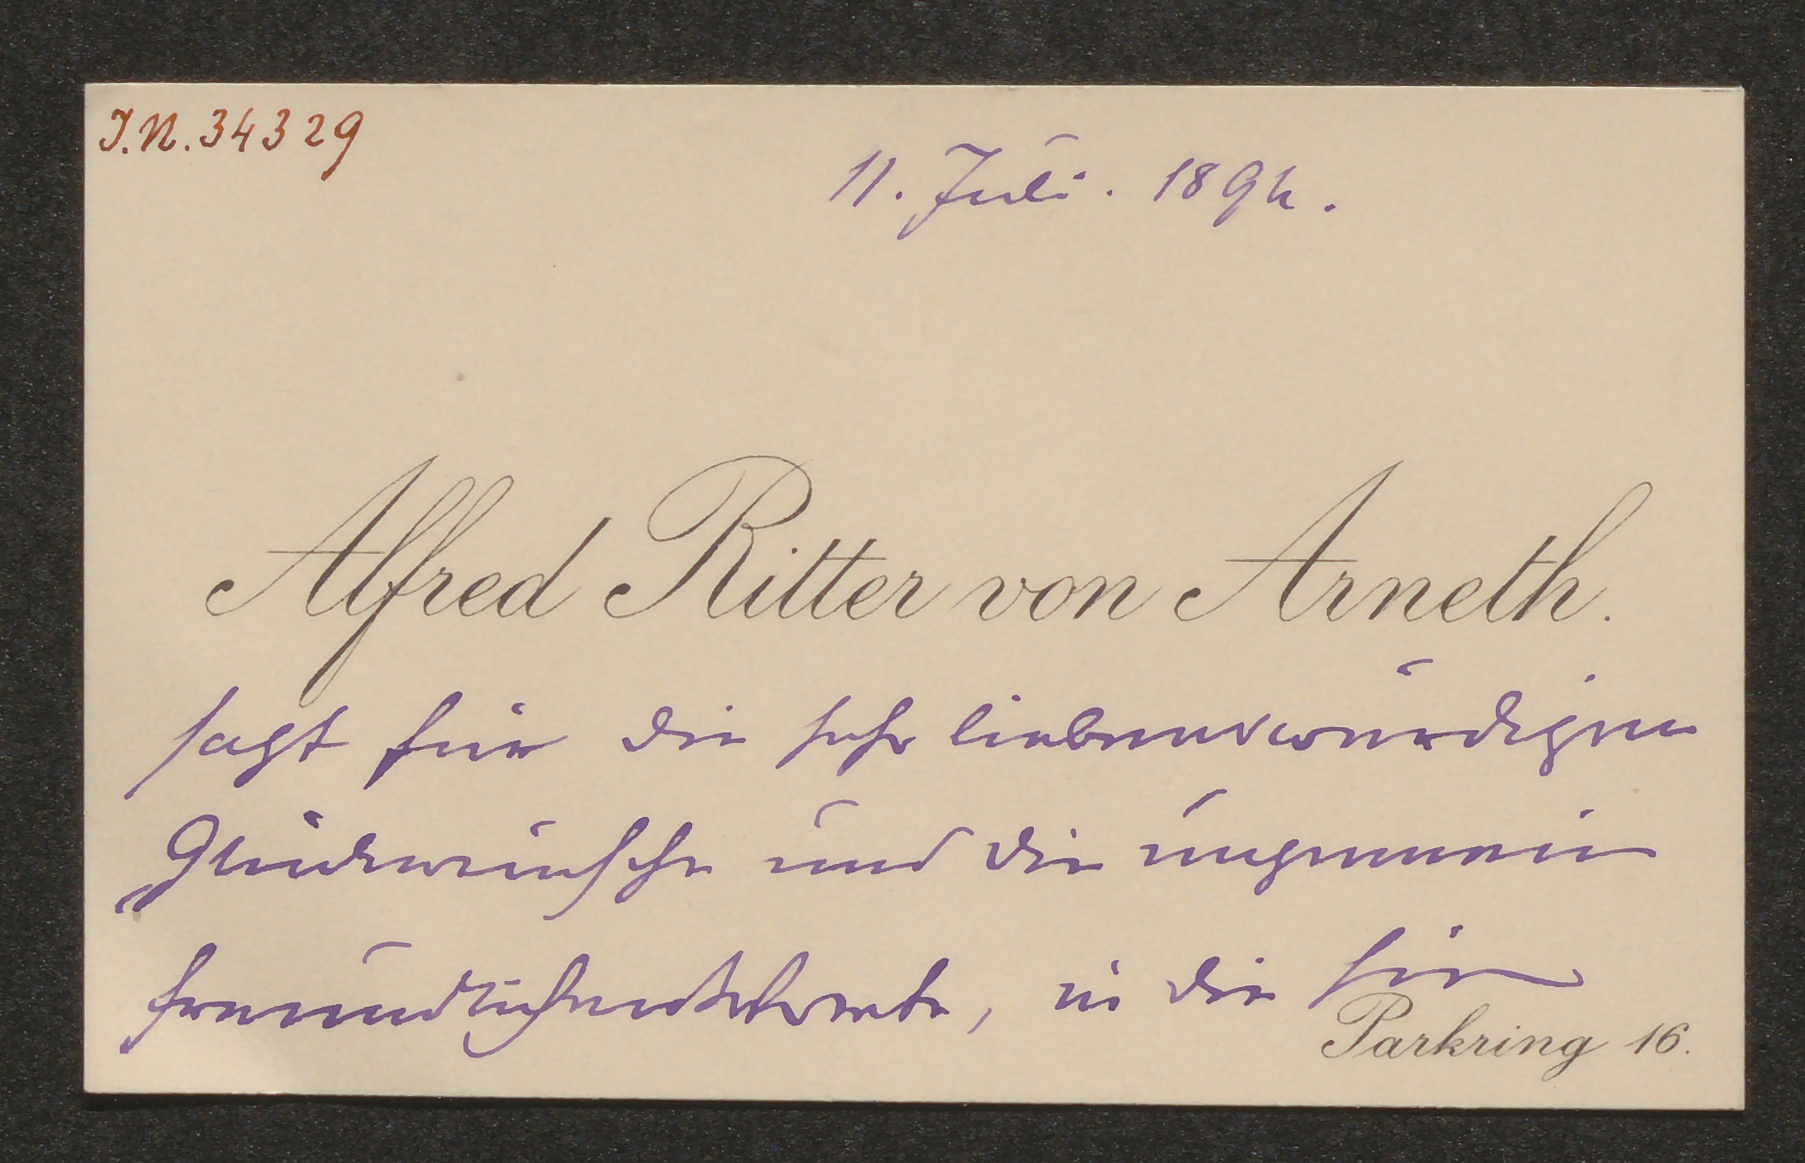 J.N. 34329
11. Juli. 1894.
Alfred Ritter von Arneth.
sagt für die sehr liebenswürdigen
Glückwünsche und die ungemein
freundlichen Worte, in die Sie
Parkring 16.